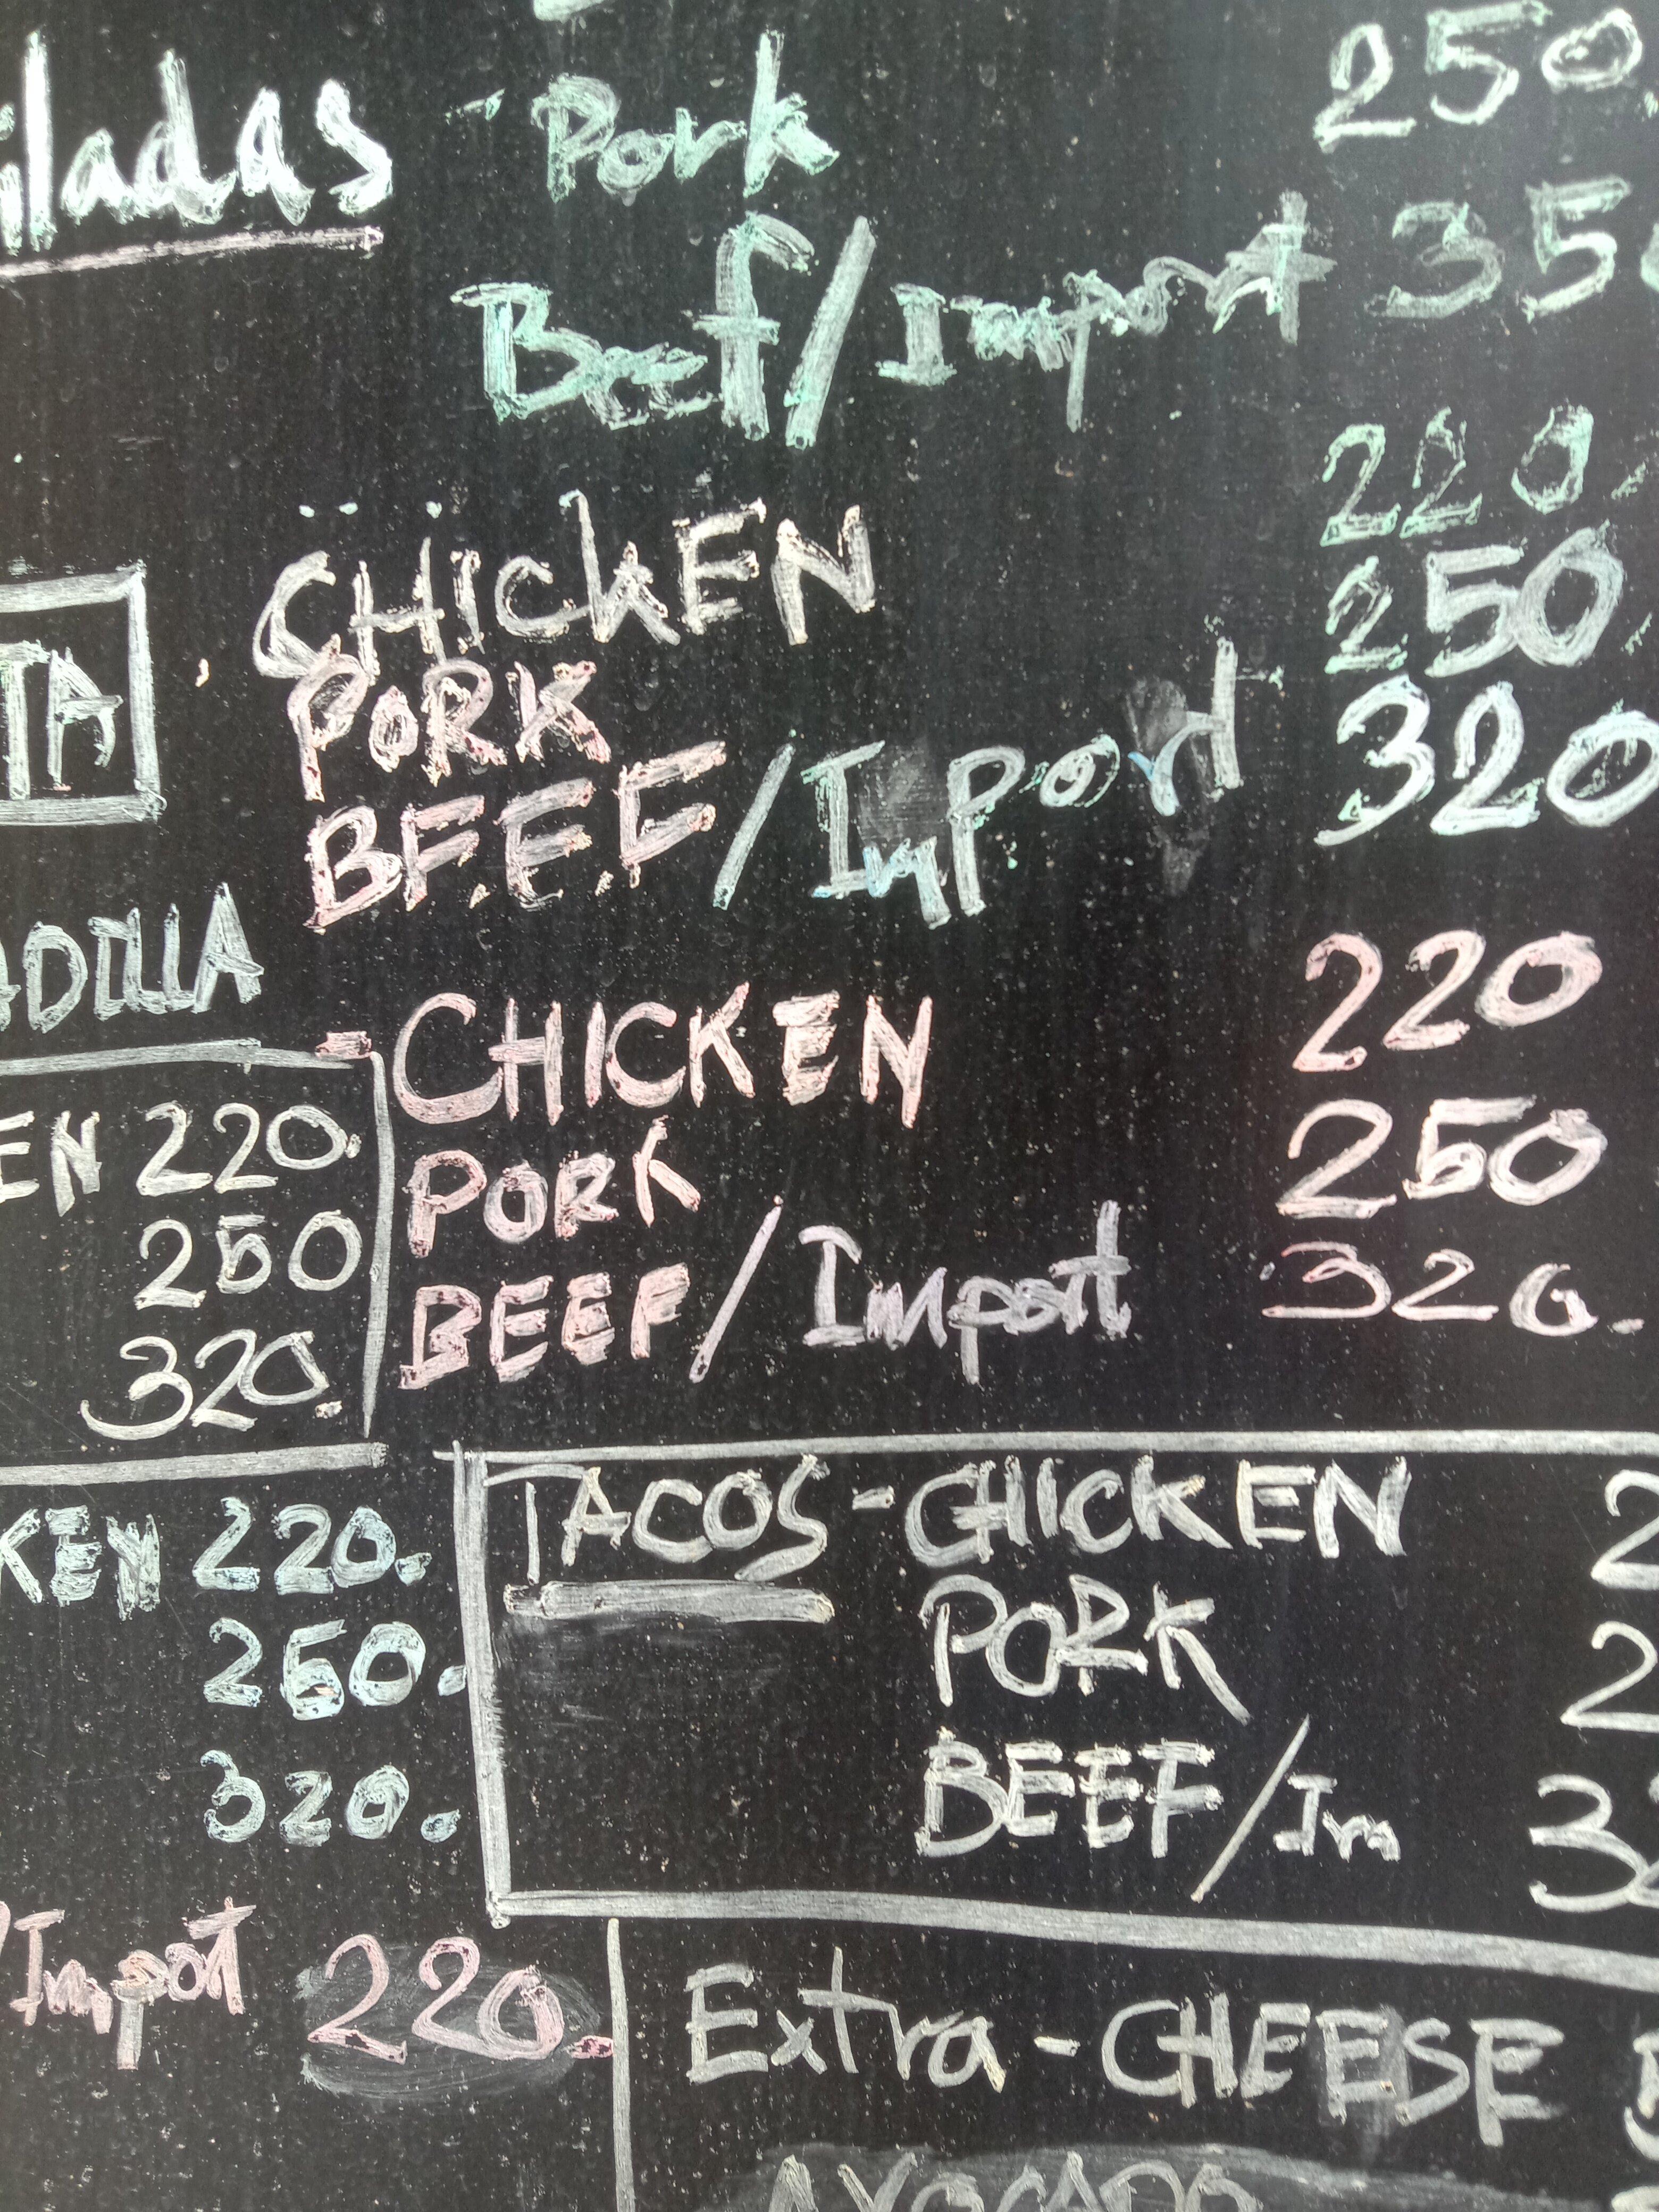 iladas - Pork 250.
Beef/Import 35
CHICKEN 220.
TA PORK 250.
BEEF/Import 320
ADILLA
CHICKEN 220
EN 220. PORK 250
250 BEEF/Import 320.
320.
TACOS - CHICKEN 2
KEN 220. PORK 2
250. BEEF/Im 32
320.
/Import 220.
Extra - CHEESE
AVOCADO